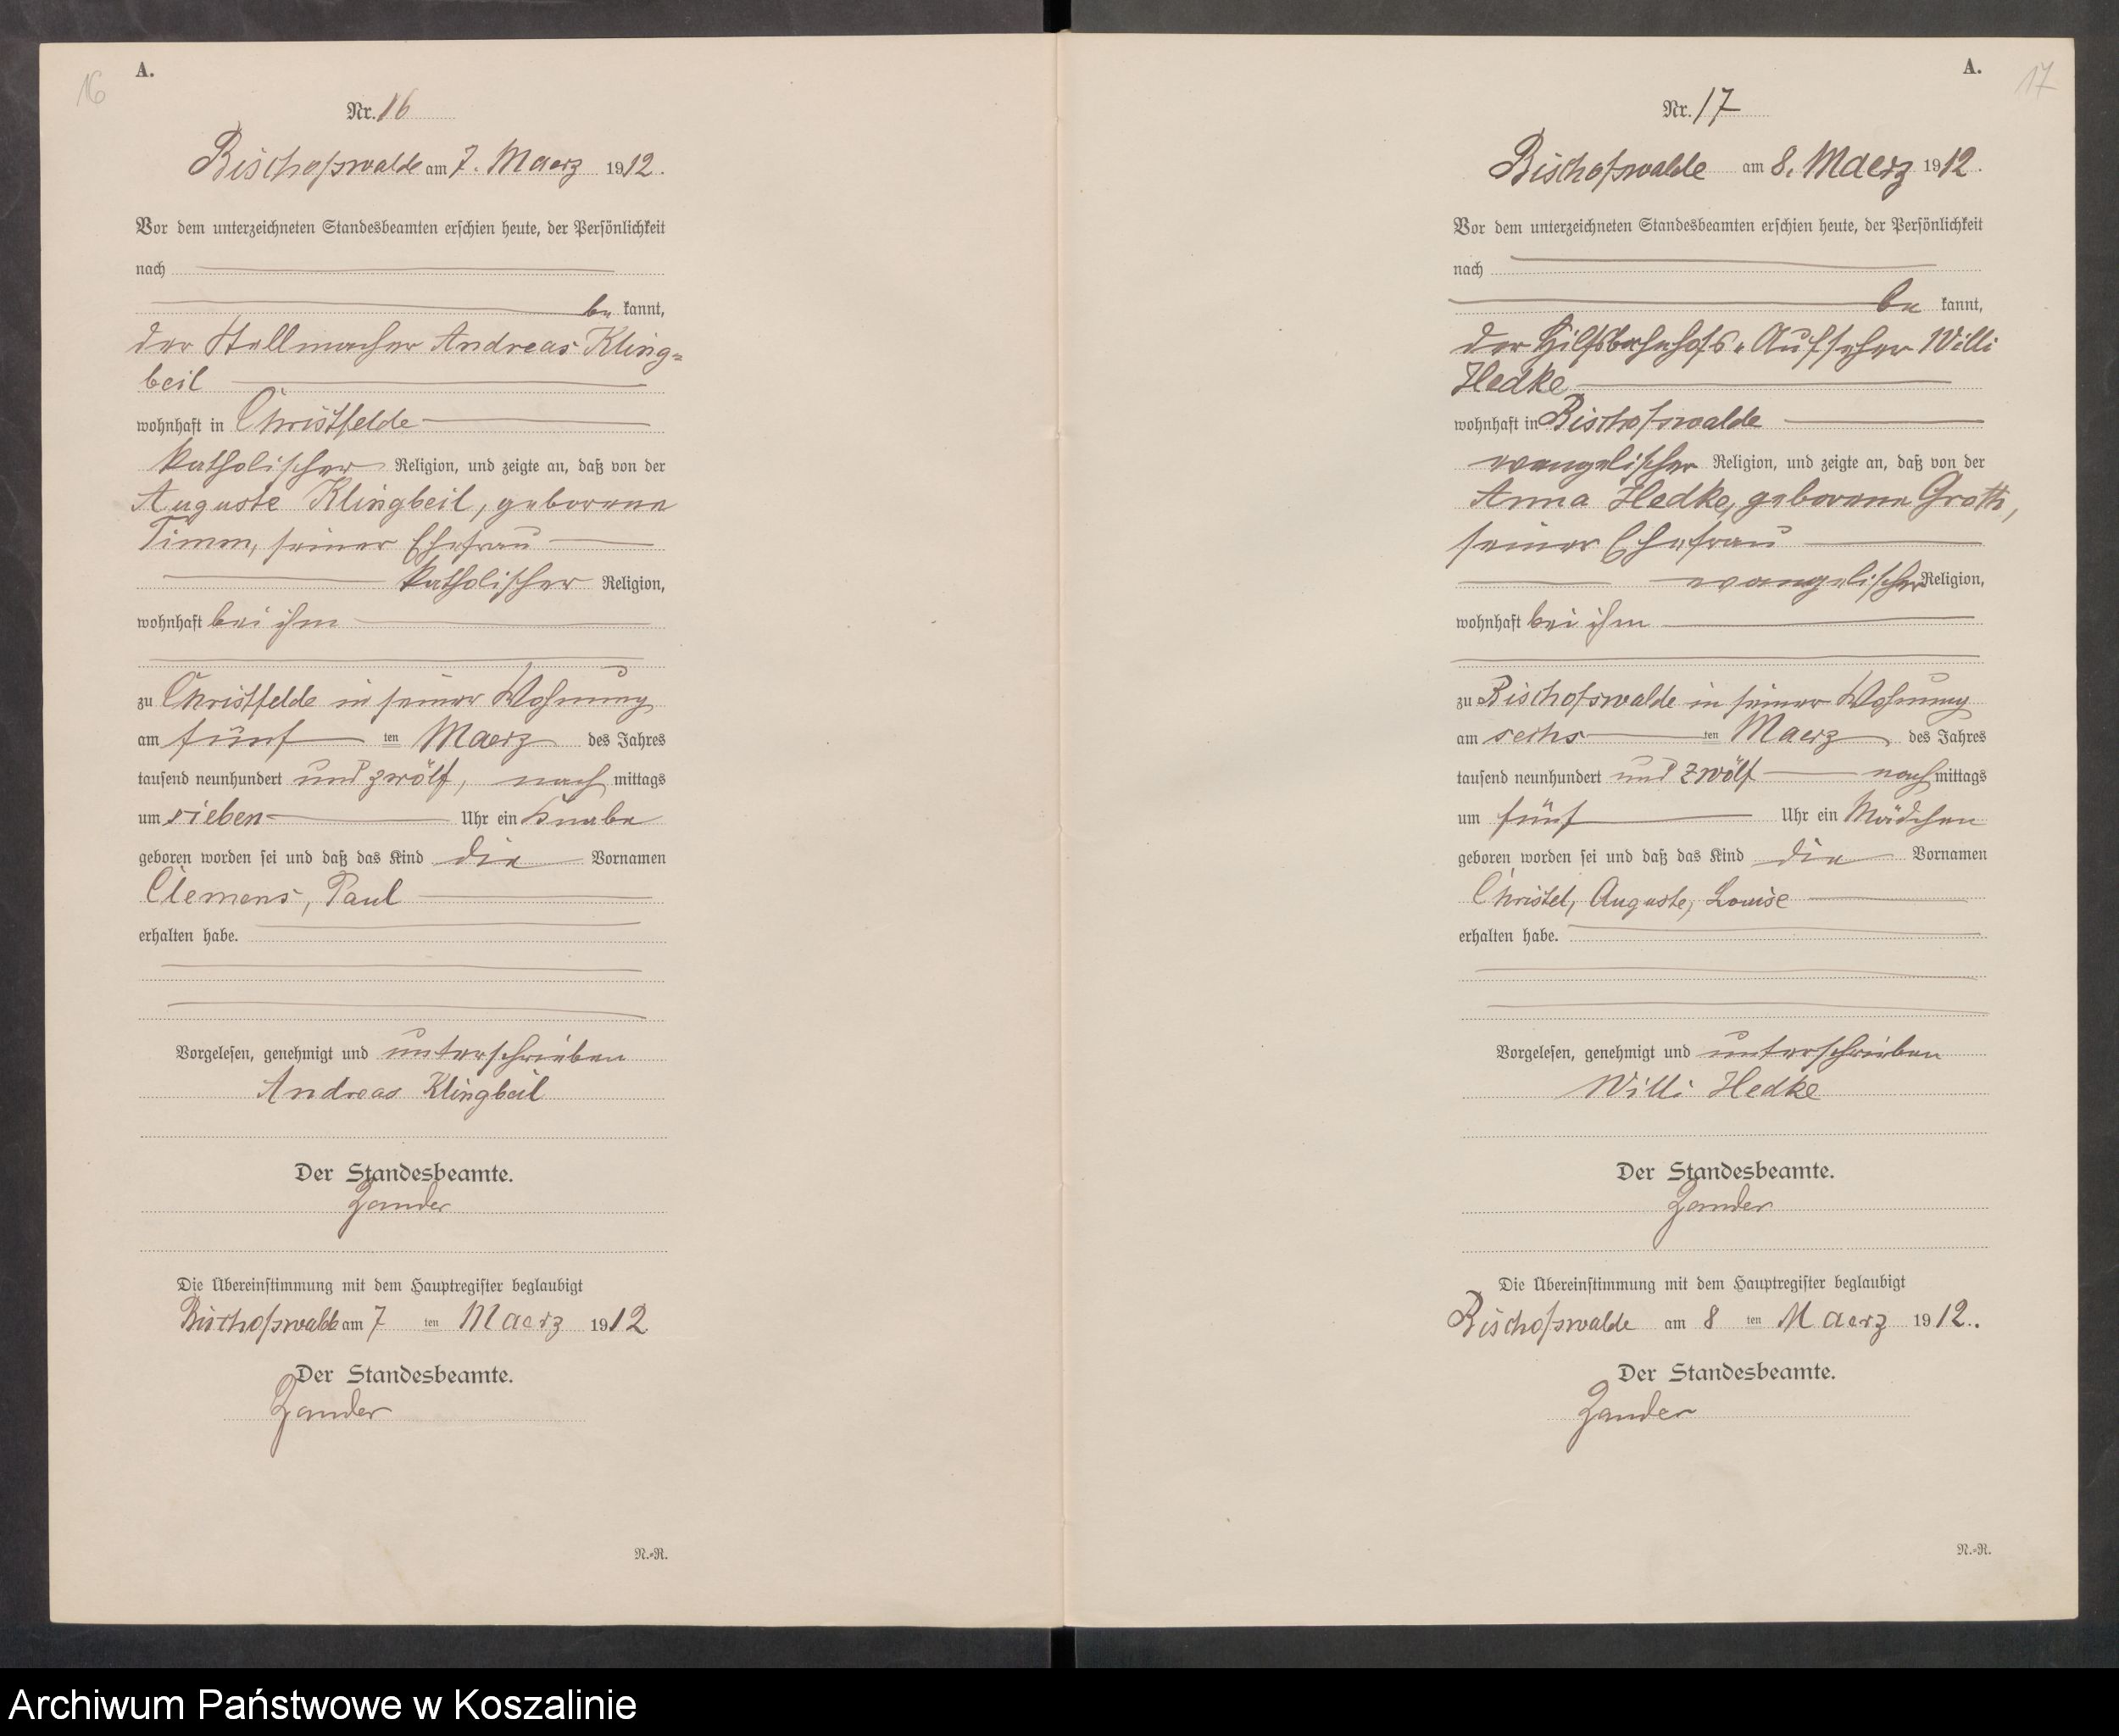 16
A.
Nr. 16
Bischofswalde am 7. Maerz 1912.
Vor dem unterzeichneten Standesbeamten erschien heute, der Persönlichkeit
nach
be kannt,
der Stellmacher Andreas Kling-
beil
wohnhaft in Christfelde
katholischer Religion, und zeigte an, daß von der
Auguste Klingbeil, geborene
Timm, seiner Ehefrau
katholischer Religion,
wohnhaft bei ihm
zu Christfelde in seiner Wohnung
am fünf ten Maerz des Jahres
tausend neunhundert und zwölf, nach mittags
um sieben Uhr ein Knabe
geboren worden sei und daß das Kind die Vornamen
Clemens, Paul
erhalten habe.
Vorgelesen, genehmigt und unterschrieben
Andreas Klingbeil
Der Standesbeamte.
Zander
Die Übereinstimmung mit dem Hauptregister beglaubigt
Bischofswalde am 7 ten Maerz 1912
Der Standesbeamte.
Zander
N.-R.
A.
17
Nr. 17
Bischofswalde am 8. Maerz 1912.
Vor dem unterzeichneten Standesbeamten erschien heute, der Persönlichkeit
nach
be kannt,
der Hilfsbahnhofs-Aufseher Willi
Hedke
wohnhaft in Bischofswalde
evangelischer Religion, und zeigte an, daß von der
Anna Hedke, geborene Groth,
seiner Ehefrau
evangelischer Religion,
wohnhaft bei ihm
zu Bischofswalde in seiner Wohnung
am sechs ten Maerz des Jahres
tausend neunhundert und zwölf nach mittags
um fünf Uhr ein Mädchen
geboren worden sei und daß das Kind die Vornamen
Christel, Auguste, Louise
erhalten habe.
Vorgelesen, genehmigt und unterschrieben
Willi Hedke
Der Standesbeamte.
Zander
Die Übereinstimmung mit dem Hauptregister beglaubigt
Bischofswalde am 8 ten Maerz 1912.
Der Standesbeamte.
Zander
N.-R.
Archiwum Państwowe w Koszalinie